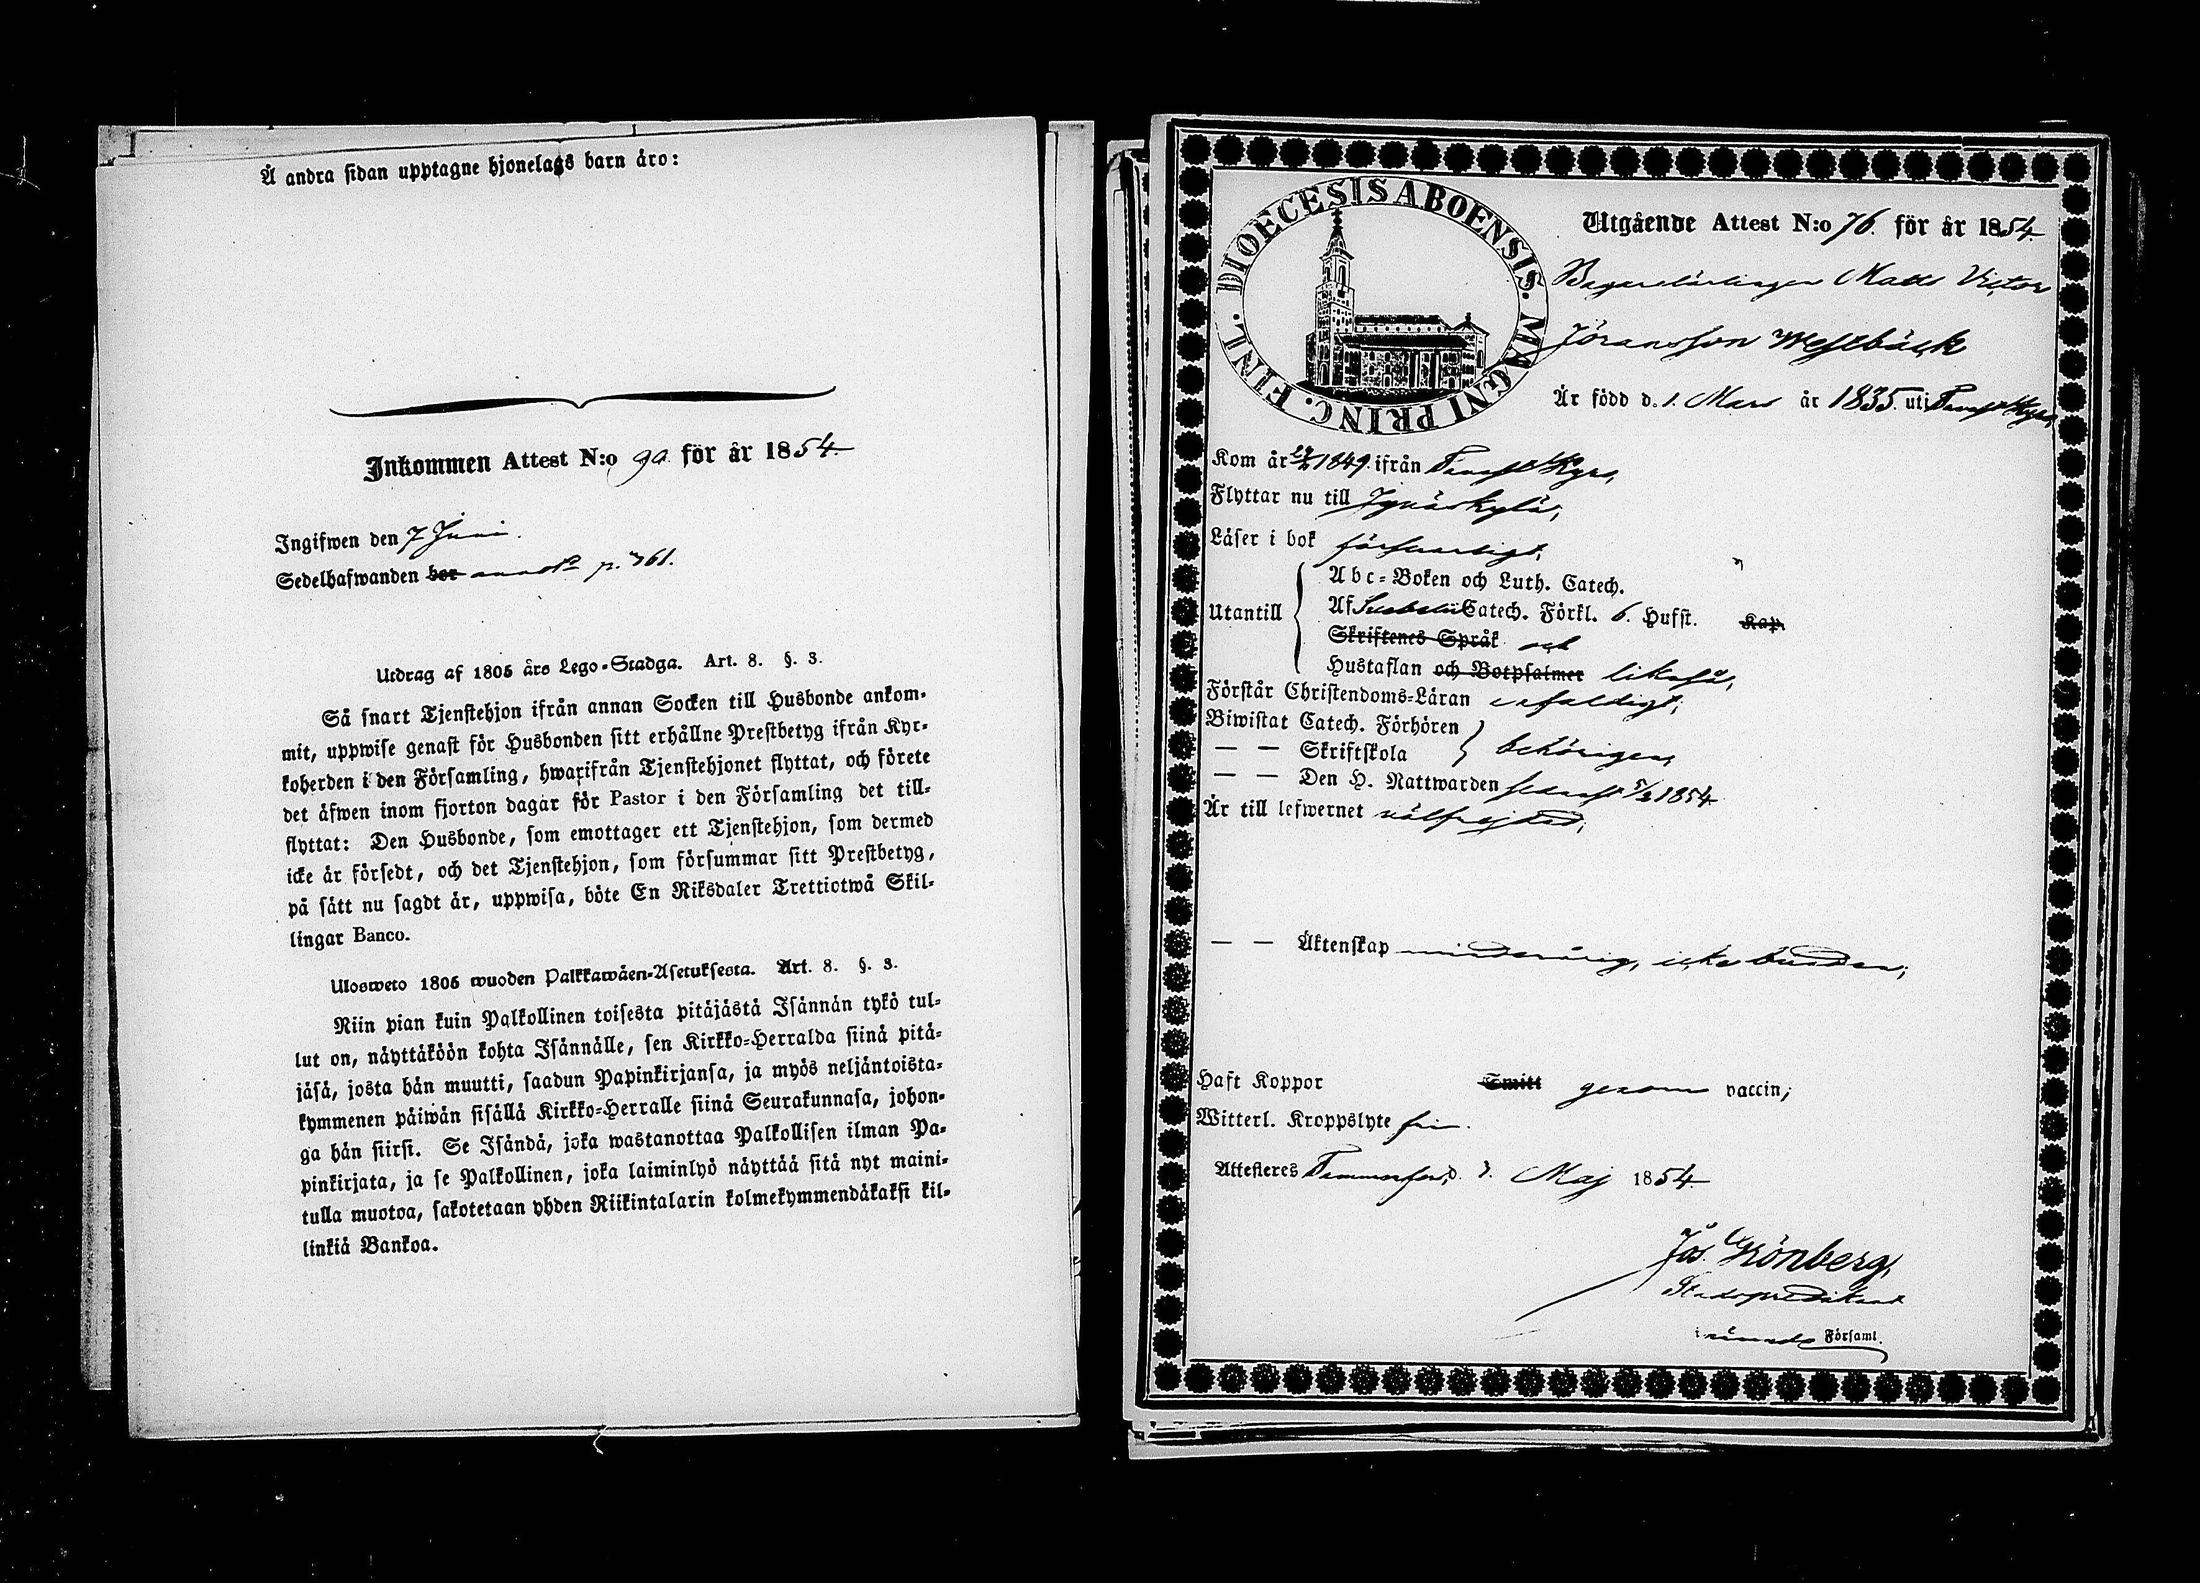 Å andra sidan upptagne hjonelags barn äro:
Inkommen Attest N:o 90 för år 1854
Ingifwen den 7 Juni.
Sedelhafwanden bor p. 361.
Utdrag af 1805 års Lego-Stadga. Art. 8. §. 3.
Så snart Tjenstehjon ifrån annan Socken till Husbonde ankom-
mit, uppwise genast för Husbonden sitt erhållne Prestbetyg ifrån Kyr-
koherden i den Församling, hwarifrån Tjenstehjonet flyttat, och förete
det äfwen inom fjorton dagar för Pastor i den Församling det till-
flyttat: Den Husbonde, som emottager ett Tjenstehjon, som dermed
icke är försedt, och det Tjenstehjon, som försummar sitt Prestbetyg,
på sätt nu sagdt är, uppwisa, böte En Riksdaler Trettiotwå Skil-
lingar Banco.
Ulosweto 1805 wuoden Palkkawäen-Asetuksesta. Art. 8. §. 3.
Niin pian kuin Palkollinen toisesta pitäjästä Isännän tykö tul-
lut on, näyttäköön kohta Isännälle, sen Kirkko-Herralda siinä pitä-
jäsä, josta hän muutti, saadun Papinkirjansa, ja myös neljäntoista-
kymmenen päiwän sisällä Kirkko-Herralle siinä Seurakunnasa, johon-
ga hän siirsi. Se Isändä, joka wastanottaa Palkollisen ilman Pa-
pinkirjata, ja se Palkollinen, joka laiminlyö näyttää sitä nyt maini-
tulla muotoa, sakotetaan yhden Riikintalarin kolmekymmendäkaksi kil-
linkiä Bankoa.
DIOECESIS ABOENSIS. MAGNI PRINC. FINL.
Utgående Attest N:o 76. för år 1854
Bagarelärlingen Matts Victor
Jöransson Westbäck
Är född d. 1. Mars år 1835. uti Tavast Kyro,
Kom år 1849. ifrån Tavast Kyro,
Flyttar nu till Jyväskylä,
Läser i bok försvarligt,
Utantill
Abc-Boken och Luth. Catech.
Af Svebelii Catech. Förkl. 6. Hufst. Kap.
Skriftenes Språk och
Hustaflan och Botpsalmer likaså,
Förstår Christendoms-Läran enfaldigt,
Biwistat Catech. Förhören
— — Skriftskola behörigen,
— — Den H. Nattwarden senast 5/2 1854
Är till lefwernet välfrejdad,
— — Äktenskap minderårig, icke bunden,
Haft Koppor Smitt genom vaccin,
Witterl. Kroppslyte fri.
Attesteres Tammerfors, d. Maj 1854
Jos. Grönberg,
Stadspredikant
i Församl.